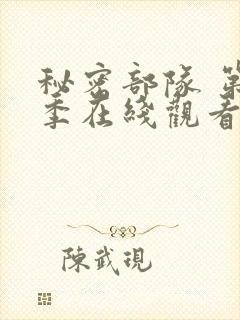 秘密部隊 第
季在綫觀看
陳武現